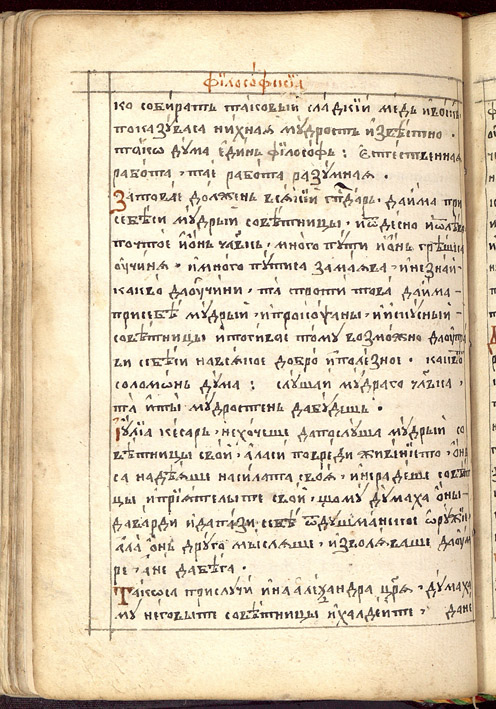 фїлосо́фскїѧ
ко собиратъ таковый сладкїй медъ и҆восъ
показꙋваса нихнаѧ мꙋдрость и҆звѣстно .
такѡ дꙋма єдинъ фїлософъ : Єстественнаѧ
работа , тае работа разꙋмнаѧ .
Затовае должень всѧкїй гдⷭ҇арь , даима при
себѣси мꙋдрый совѣтницы , и҆ѿдесно и҆ѿлѣво
почтое и҆онъ чл҃вкъ , много пꙋти и҆онъ грѣшка
оучинѧ , и҆много пꙋтиса замаѧва , и҆незнай-
какво даоучини , та проти това даима -
присебѣ мꙋдрый , и҆прокопсаны , и҆и҆скꙋсный -
совѣтницы и҆потивае томꙋ возможно даоупра
ви себѣси навсѧкое добро и҆полезное . каквѡ
соломонъ дꙋма : слꙋшай мꙋдраго чл҃вка ,
та и҆ты мꙋдростенъ дабꙋдешь .
І҆ꙋлїа кесаръ , нехочеше дапослꙋша мꙋдрый со
вѣтницы свои , аласи повреди живѣнїето , ѻ҆нъ
са надѣѧше насилата своѧ , и҆нерадеше совѣтни
цы и҆прїѧтелыте свои , щомꙋ дꙋмаха ѻ҆ны -
даварди и҆дапази себѣ ѿдꙋшманское ѡ҆рꙋжїе ,
ала ѻ҆нъ дрꙋго мыслѧше , и҆зволѧваше даоум
ре , ане дабѣга .
Такоса прислꙋчи и҆на алеѯандра цр҃ѧ , дꙋмаха
мꙋ неговыте совѣтницы и҆халдеите , дане